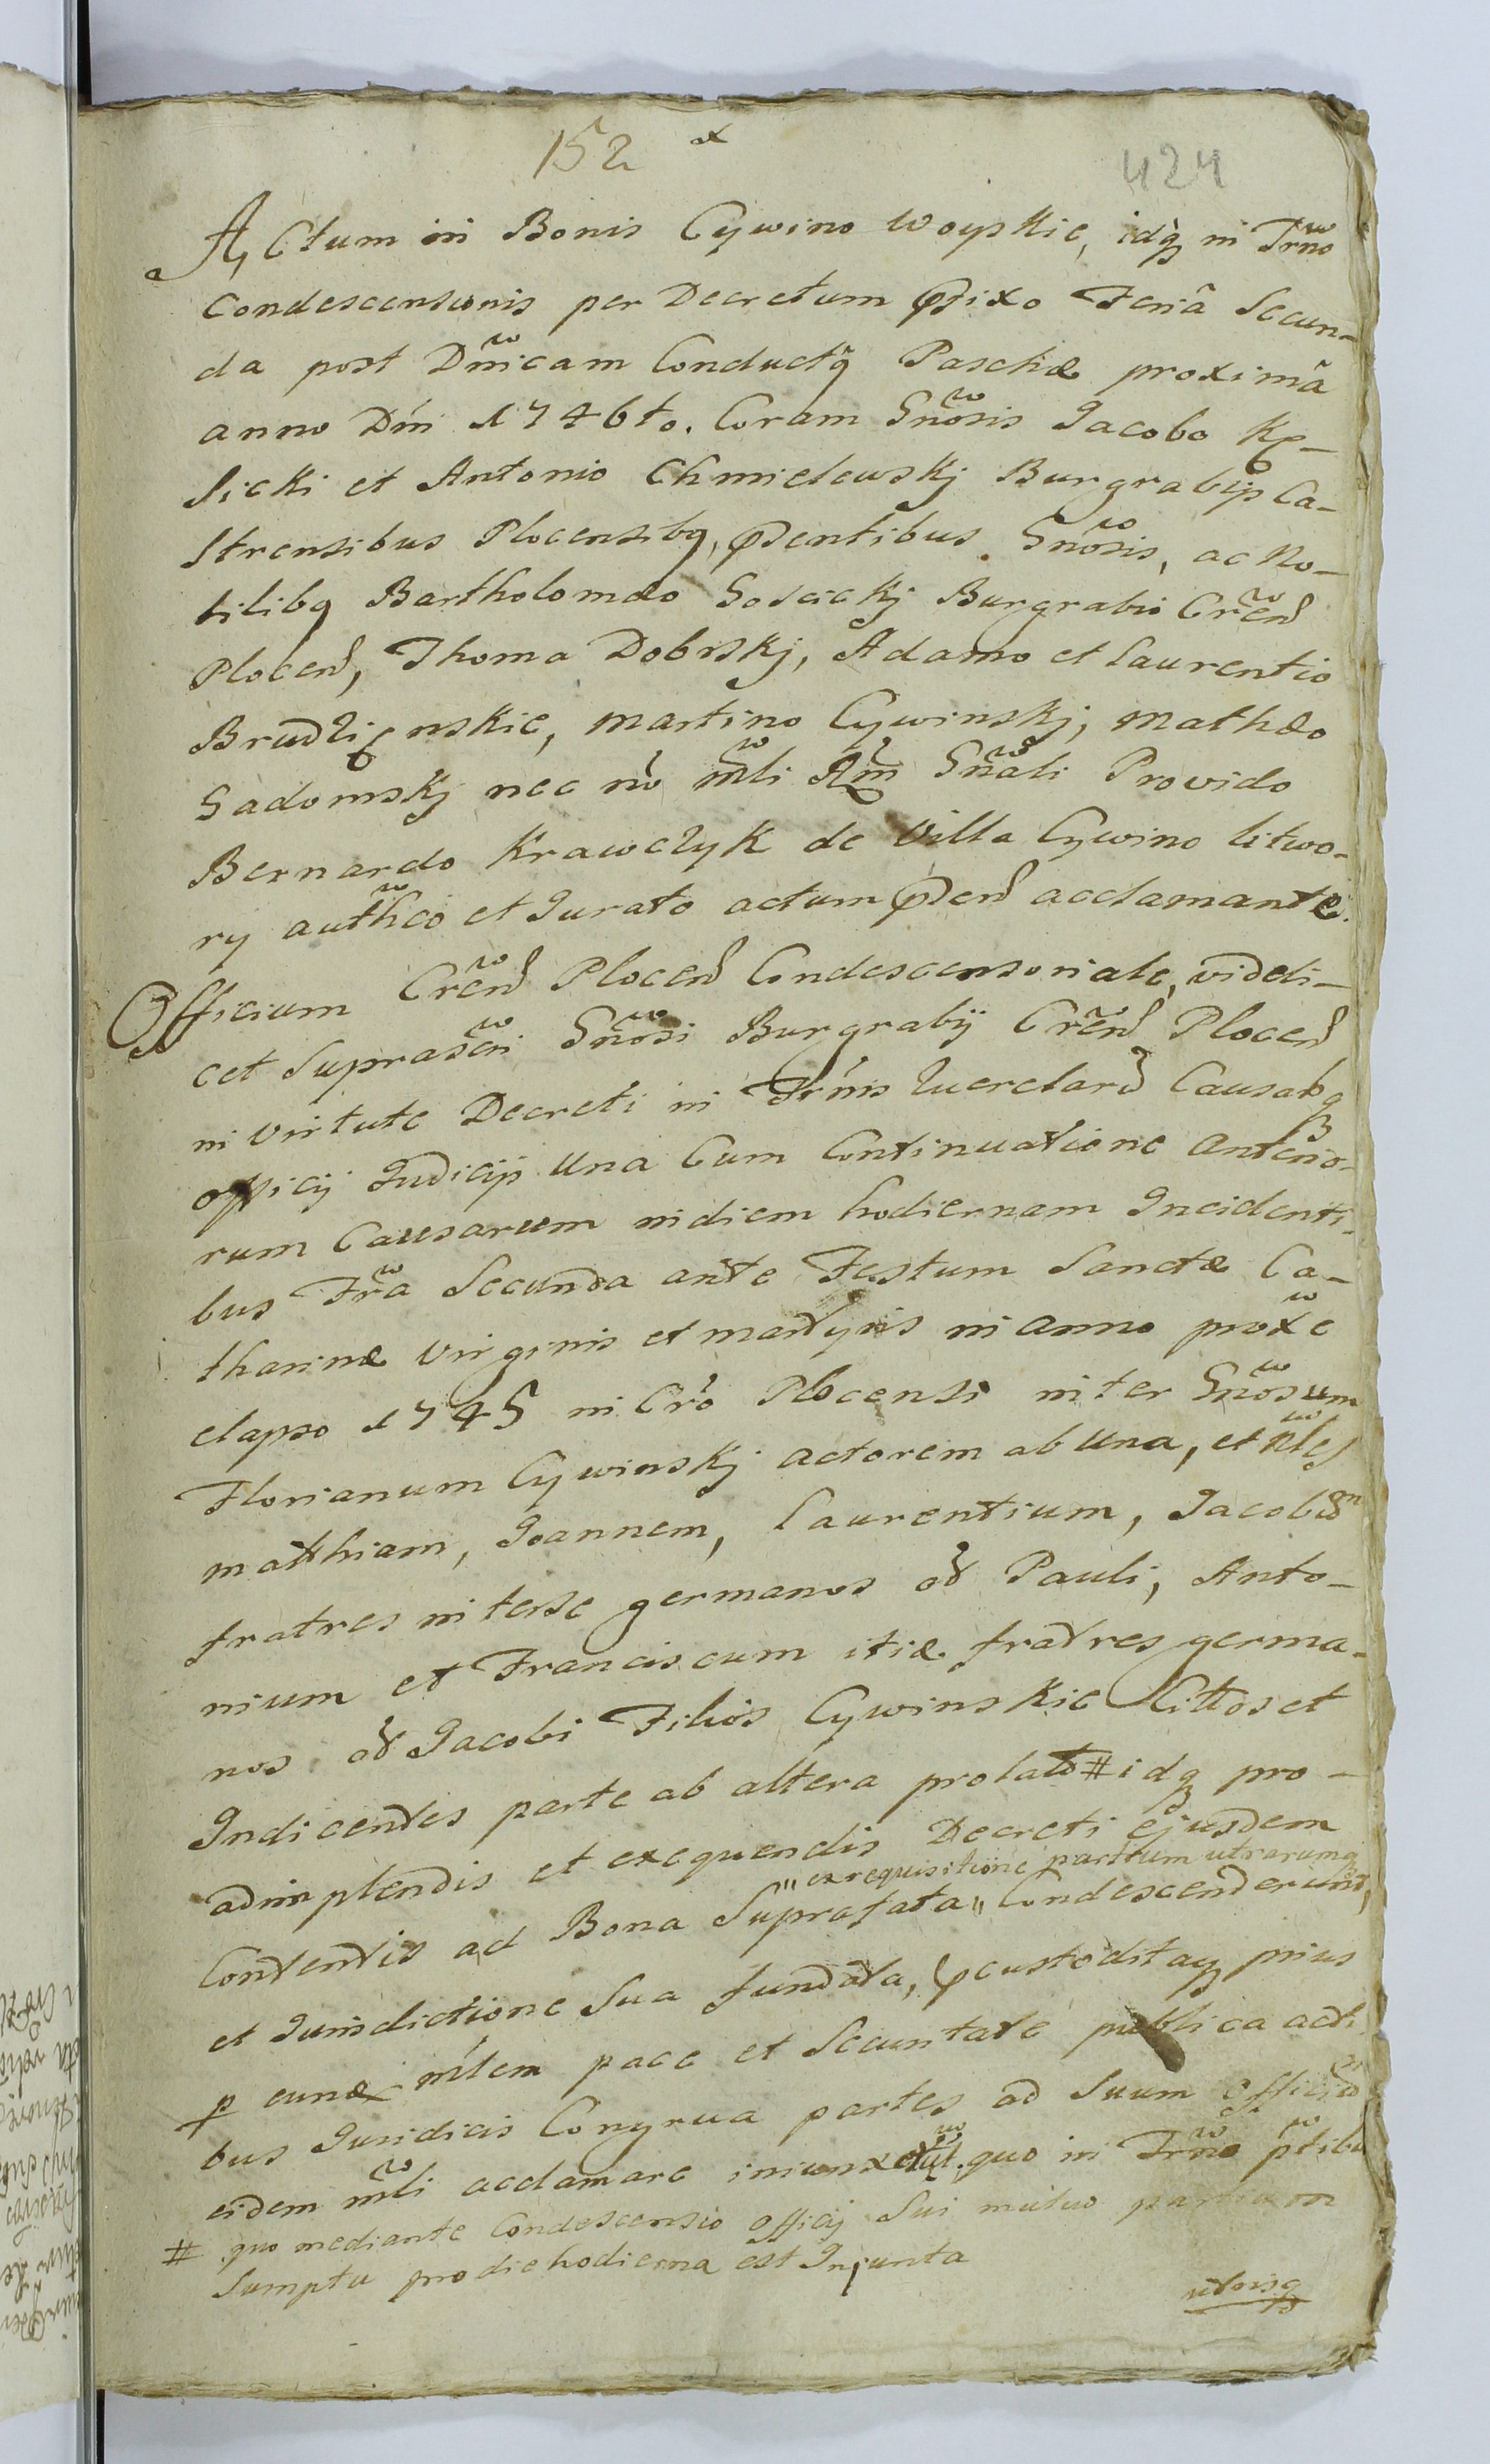 152
424
Actum in Bonis Cywino Woyskie, idq in Trno
Condescensionis per Decretum pfixo Feriâ Secun-
da post Dnicam Conductq Paschæ proximâ
anno Dni 1746to. Coram Gnosis Jacobo Kę-
sicki et Antonio Chmielewskj Burgrabijs Ca-
strensibus Plocensibq, pdentibus Gnosis, ac No-
bilibq Bartholomæo Goscickj Burgrabio Cren
Plocen, Thoma Dobrskj, Adamo et Laurentio
Brudzięnskie, Martino Cywinskj, Mathæo
Gadomskj nec nò mli Rgni Gnali Provido
Bernardo Krawczyk de Villa Cywino Litwo-
ry authco et Jurato actum pden acclamante.
Officium Cren Plocen Condescensoriale, videli-
cet Suprascri Gnosi Burgrabij Cren Plocen
in Virtute Decreti in Trnis Querelar Causabq
officij Judicijs Una Cum Continuatione Anterio-
rum Causarum in diem hodiernam Incidenti-
bus Fra Secunda ante Festum Sanctæ Ca-
tharinæ Virginis et Martyris in Anno proxe
elapso 1745 in Cro Plocensi inter Gnosum
Florianum Cywinskj Actorem ab Una, et Nles
Matthiam, Joannem, Laurentium, Jacobum
fratres inter se germanos oð Pauli, Anto-
nium et Franciscum itiæ fratres germa-
nos oð Jacobi Filios Cywinskie Cittos et
Indicentes parte ab altera prolato # idq pro-
adimplendis et exequendis Decreti ejusdem
" ex requisitione partium utrarumq
Contentis ad Bona Suprafata " Condescenderunt,
et Jurisdictione Sua fundata, pcustoditaq prius
p eundæ mlem pace et Securitate publica acti-
bus Juridicis Congrua partes ad Suum Officiu
eidem mli acclamare iniunxerut. quo in Trno ptibq
# quo mediante Condescensio officij Sui mutuo partium
Sumptu pro die hodierna est Injunta
utrisq